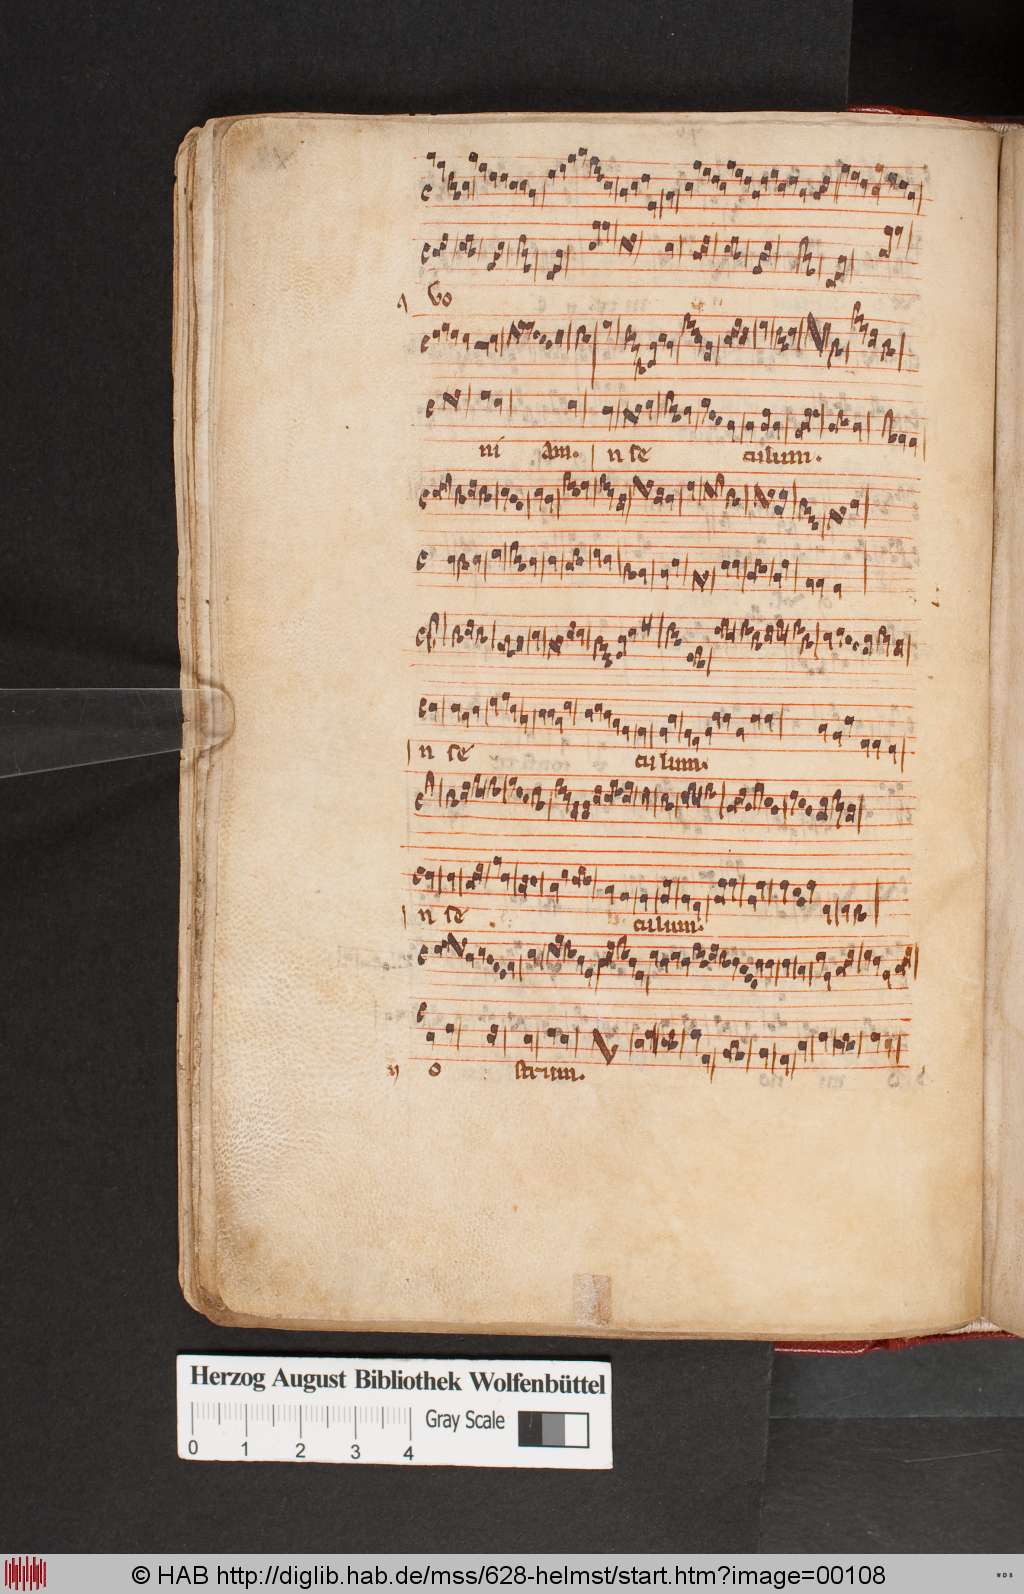 q Vo
ni am. n se culum.
n se culum.
n se culum.
n o strum.
Herzog August Bibliothek Wolfenbüttel
0 1 2 3 4 Gray Scale
© HAB http://diglib.hab.de/mss/628-helmst/start.htm?image=00108